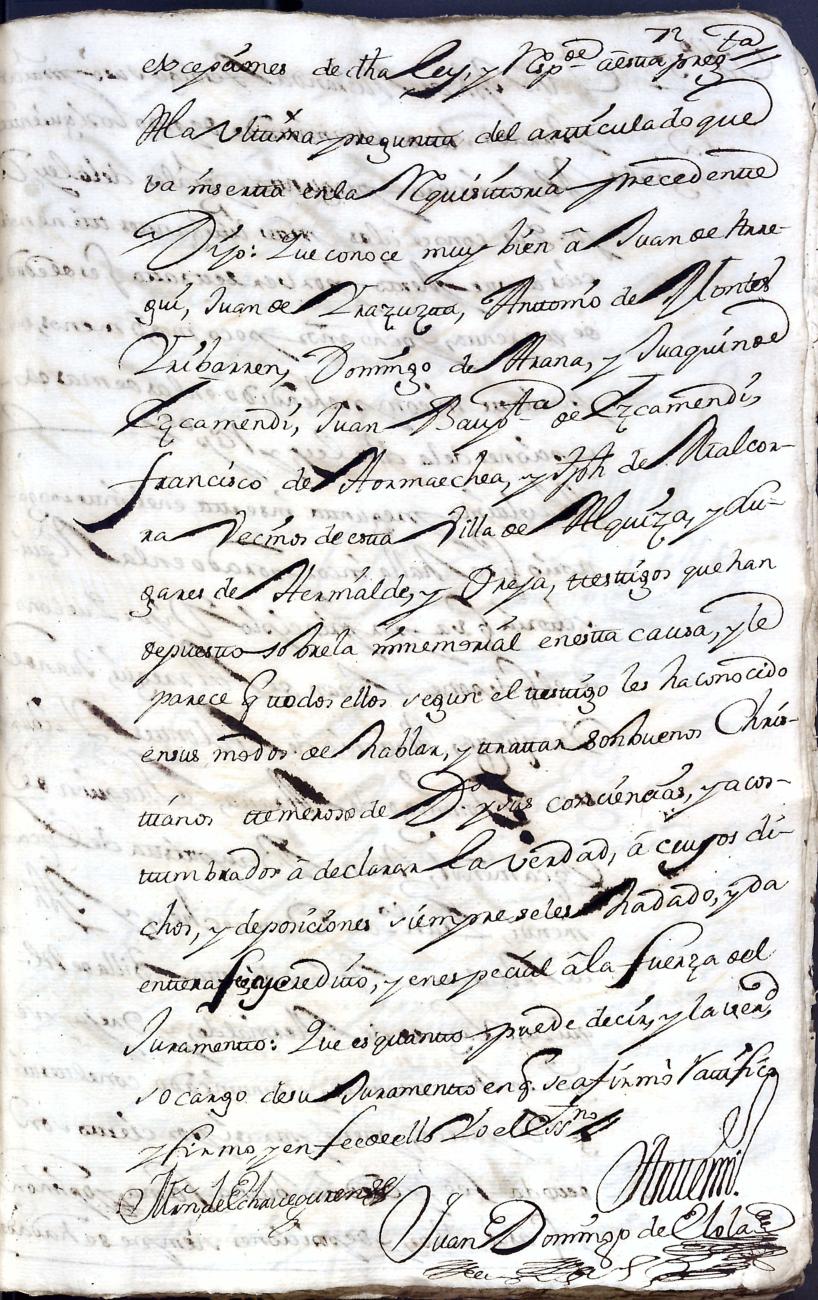 excepciones de dha Ley, y Respde â esta pregta
A la Vltima pregunta del articulado que
va inserta en la Requisitoria precedente
Dijo: Que conoce muy bien â Juan de Arre-
gui, Juan de Yrazuzta, Antonio de Montes
Yribarren, Domingo de Arana, y Juaquin de
Ezcamendi, Juan Baupta de Ezcamendi,
francisco de Hormaechea, y Jph de Alalcor-
ra Vecinos de esta Villa de Alquiza, y Lu-
gares de Hernialde, y Oreja, testigos que han
depuesto sobre la inmemorial en esta causa, y le
parece q todos ellos segun el testigo les ha conocido
en sus modos de hablar, y tratar son buenos Chris-
tianos temerosos de Ds y sus conciencias, y acos-
tumbrados â declarar la verdad, â cuyos di-
chos, y deposiciones siempre se les ha dado, y da
entera fee, y credito, y en especial â la fuerza del
Juramento: Que es quanto puede decir, y la verd
so cargo de su Juramento en q. se afirmó Ratificó
y firmo y en fee de ello Yo el Essno
Antemi
Mrn de Echaveguren
Juan Domingo de Elola